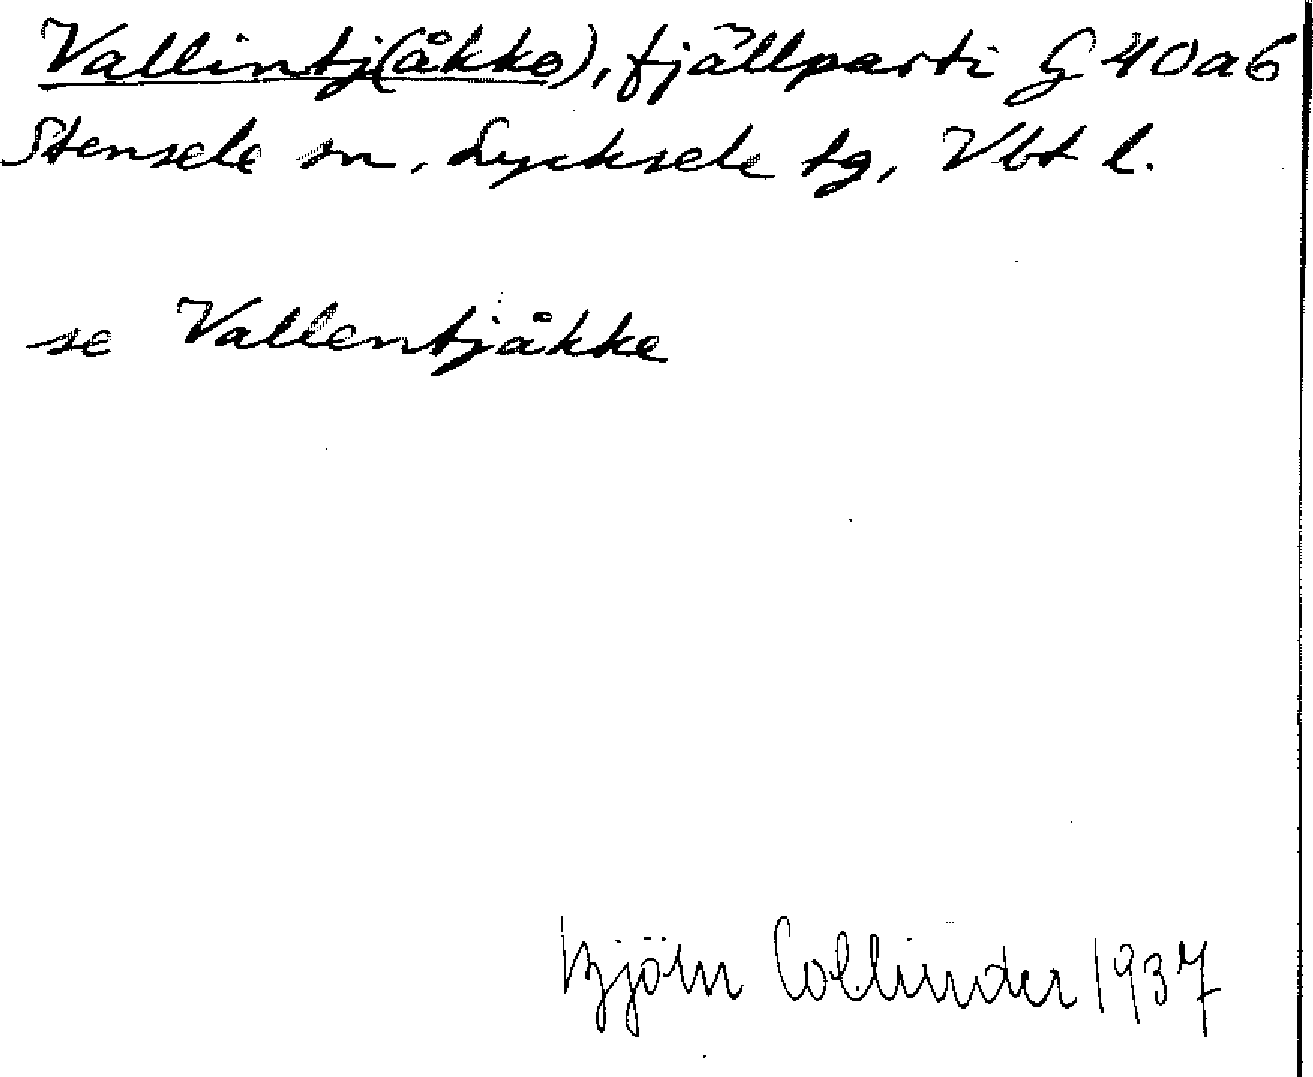 Vallintj(åkko), fjällparti G 40a6
Stensele sn, Lycksele tg, Vbt l.
se Vallentjåkke
Björn Collinder 1937